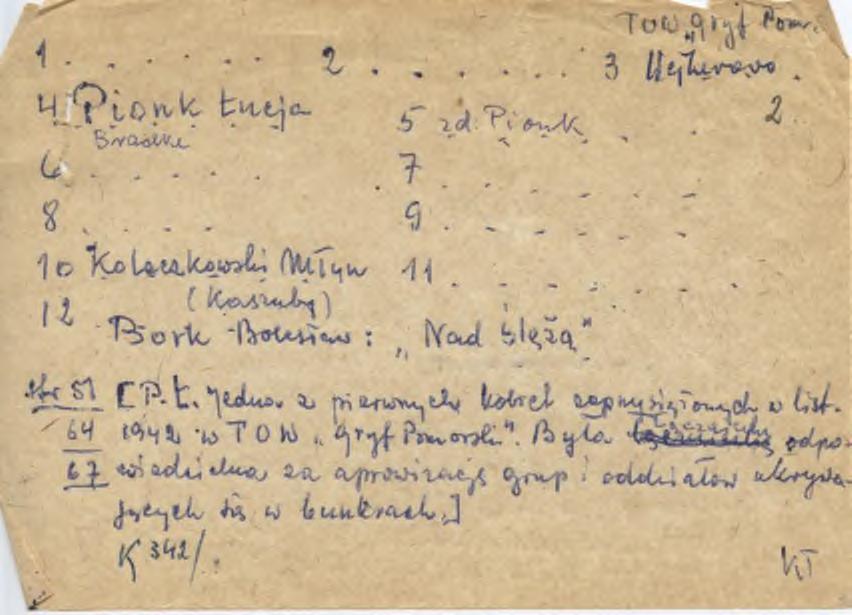 TOW „Gryf Pom.
1 . . . . . . . 2 . . . . . . . 3 Wejherowo .
4 Pionk Łucja 5 zd. Pionk . . 2.
6 . . . . . 7 . . . . . .
8 . . . . . 9 . . . . . .
10 Kołeczkowski Młyn 11 . . . . . . .
(Kaszuby)
12 Bork Bolesław : „Nad Łeżą"
str 51 [P.Ł. jedna z pierwszych kobiet zaprzysiężonych w list.
64 1942 w TOW „Gryf Pomorski". Była odpo-
67 wiedzialna za aprowizację grup i oddziałów ukrywa-
jących się w bunkrach.]
K 342/.
KT